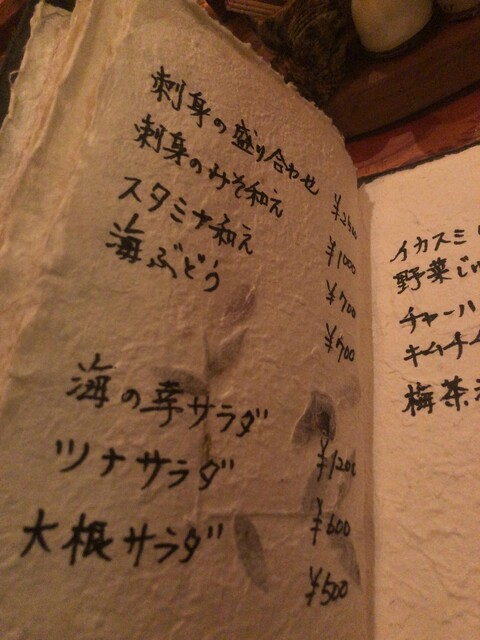 刺身の盛り合わせ
刺身のみそ和え ¥2500
スタミナ和え ¥1000
海ぶどう ¥700
¥700
海の幸サラダ
ツナサラダ ¥1200
大根サラダ ¥600
¥500
イカスミ
野菜じ
チャーハ
キムチ
梅茶